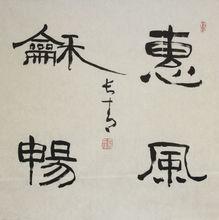 惠風
龢暢